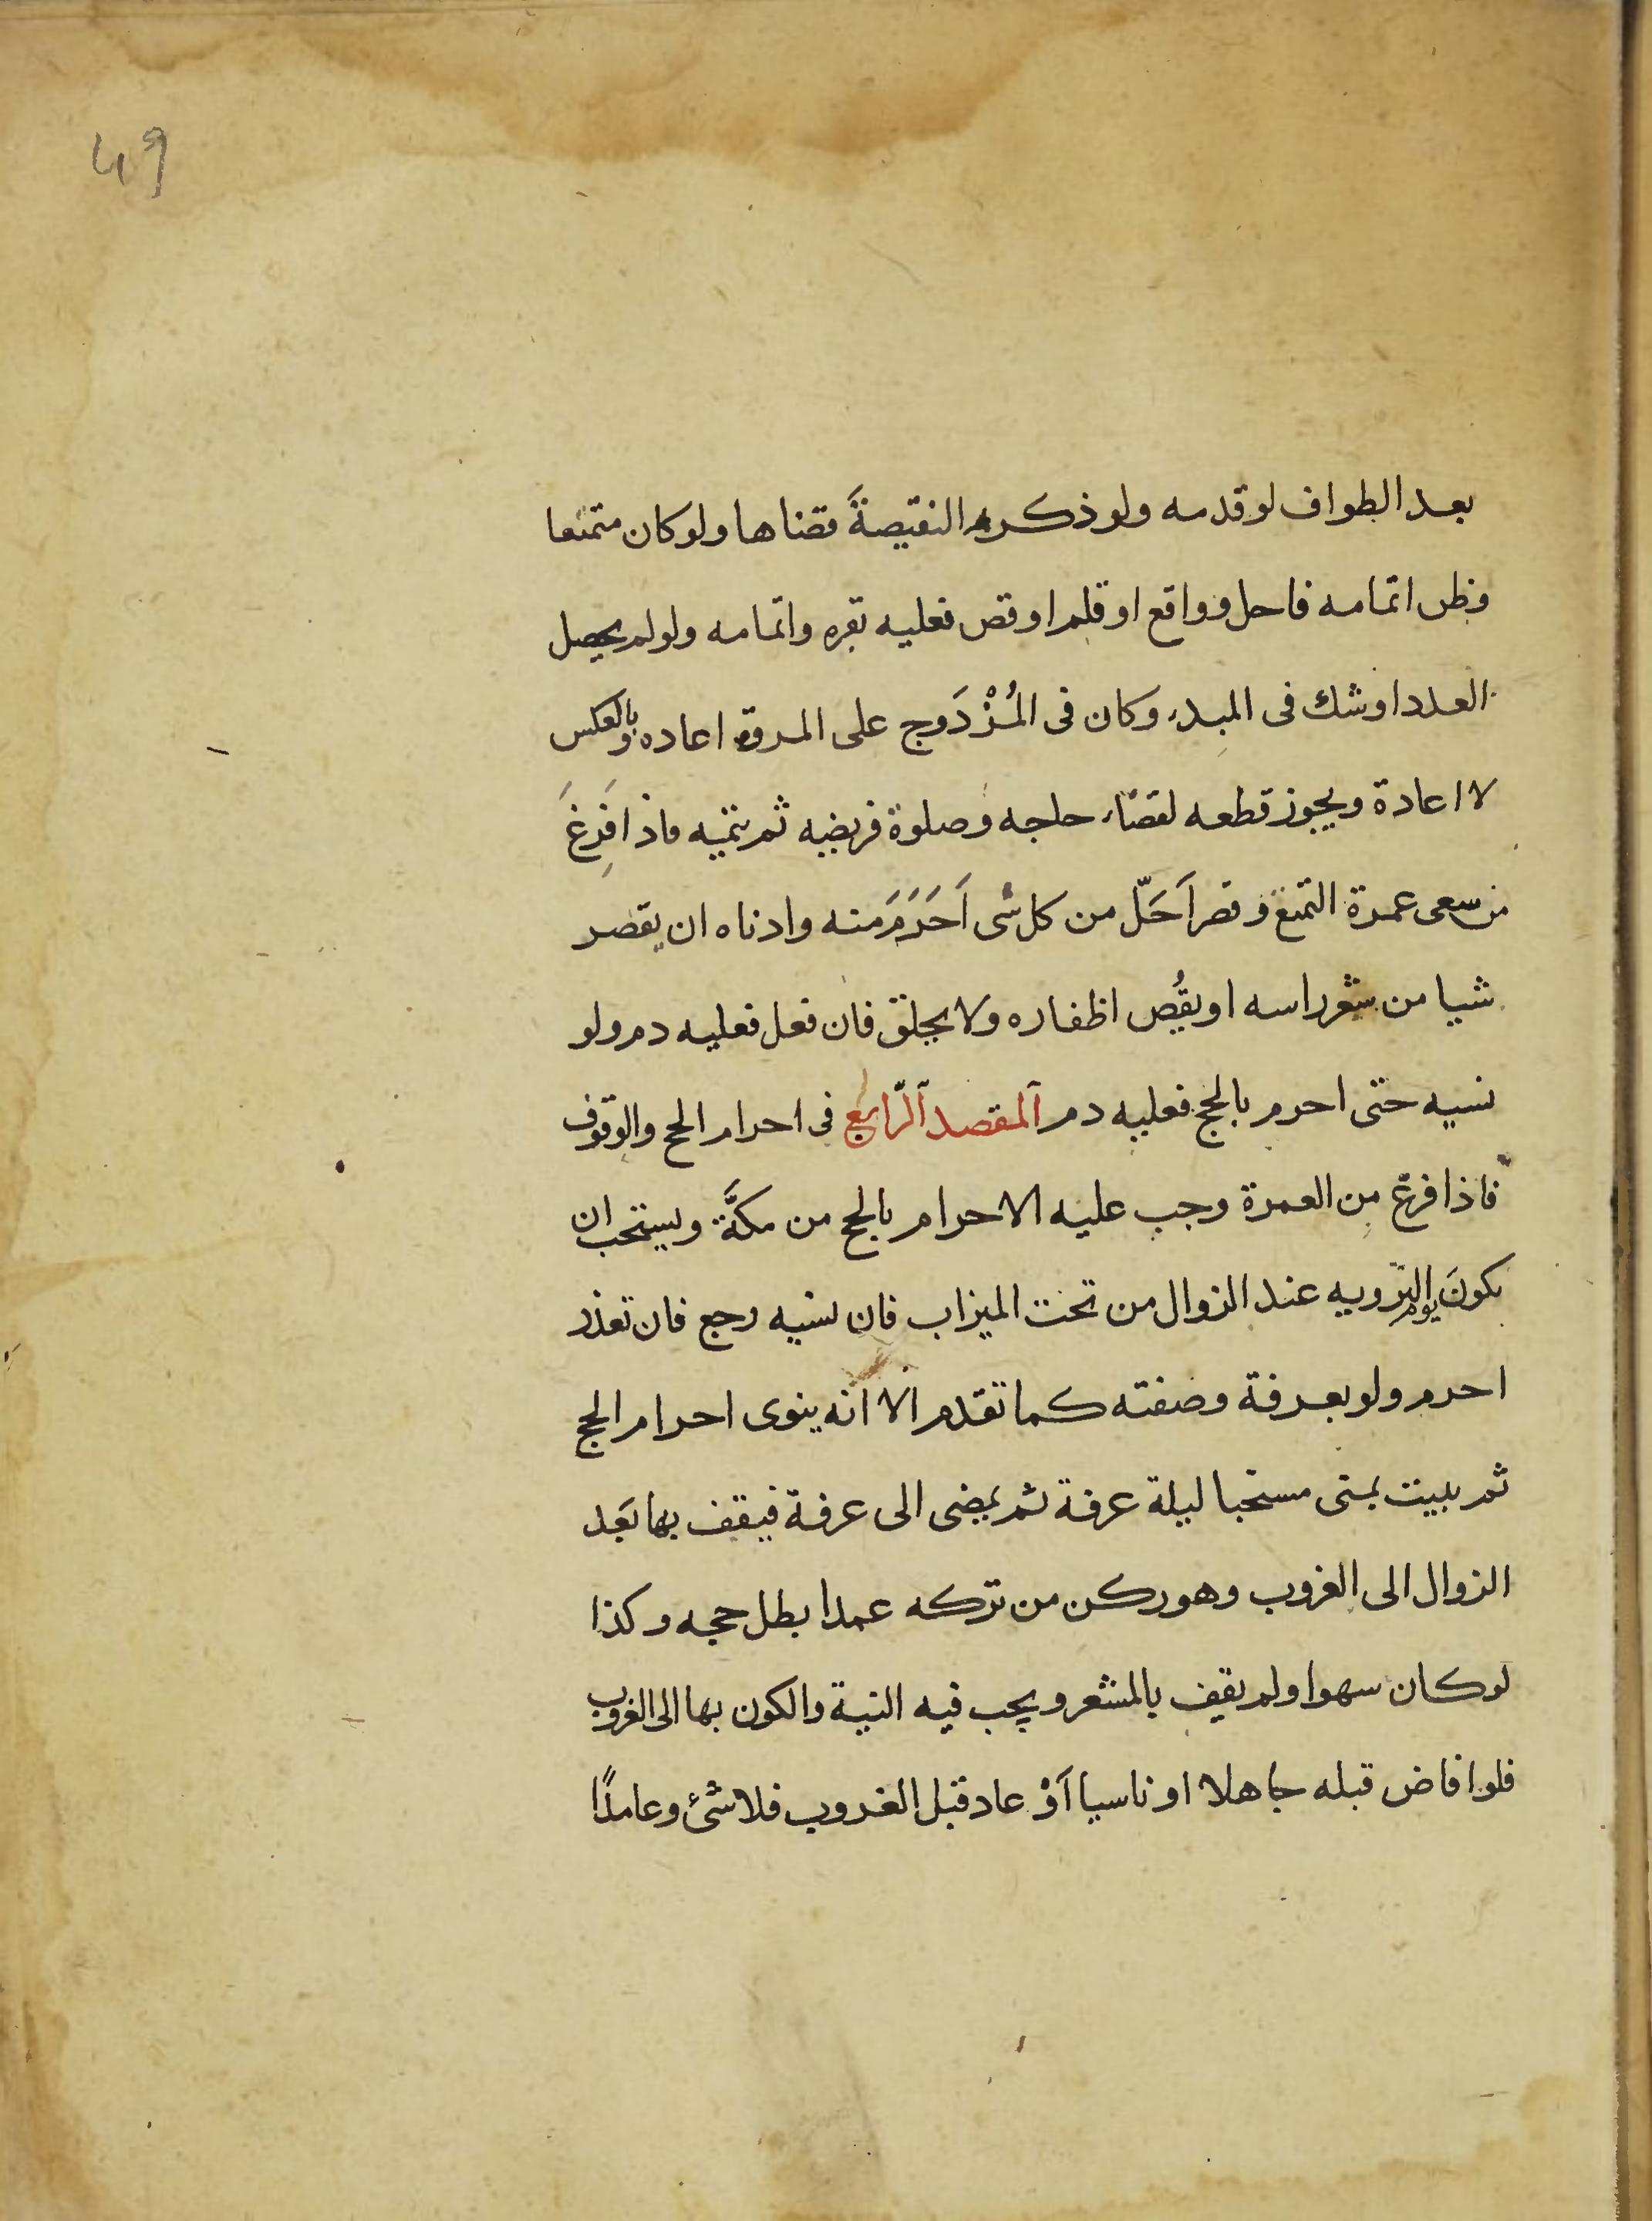 49
بعد الطواف لو قدمه ولو ذكر النقيصةَ قضاها ولو كان متمتعا
وظن اتمامه فاحل وواقع او قلم او قص فعليه بقره واتمامه ولو لم يحصل
العدد او شك فى المبدء وكان فى المُزْدَوج على المروة اعاده وبالعكس
لا اعادة ويجوز قطعه لقضاء حاجه وصلوة فريضه ثم يتمه فاذا فرغَ
من سعى عمرة التمتع وقصر اَحَلّ من كل شى اَحَرَمَ منه وادناه ان يقصر
شيا من شعر راسه او يقُص اظفاره ولا يحلق فان فعل فعليه دم ولو
نسيه حتى احرم بالحج فعليه دم المقصد الرّابع فى احرام الحج والوقوف
فاذا فرغ من العمرة وجب عليه الاحرام بالحج من مكَّة ويستحب ان
يكونَ يوم التّرويه عند الزوال من تحت الميزاب فان نسيه رجع فان تعذر
احرم ولو بعرفة وصفته كما تقدم الا انه ينوى احرام الحج
ثم يبيت بمنى مستحبا ليلة عرفة ثم يمضى الى عرفة فيقف بها بَعد
الزوال الى الغروب وهو ركن من تركه عمدا بطل حجه وكذا
لو كان سهوا ولم يقف بالمشعر ويجب فيه النية والكون بها الى الغروب
فلو افاض قبله جاهلا او ناسيا اَوْ عاد قبل الغروب فلا شئ وعامدًا